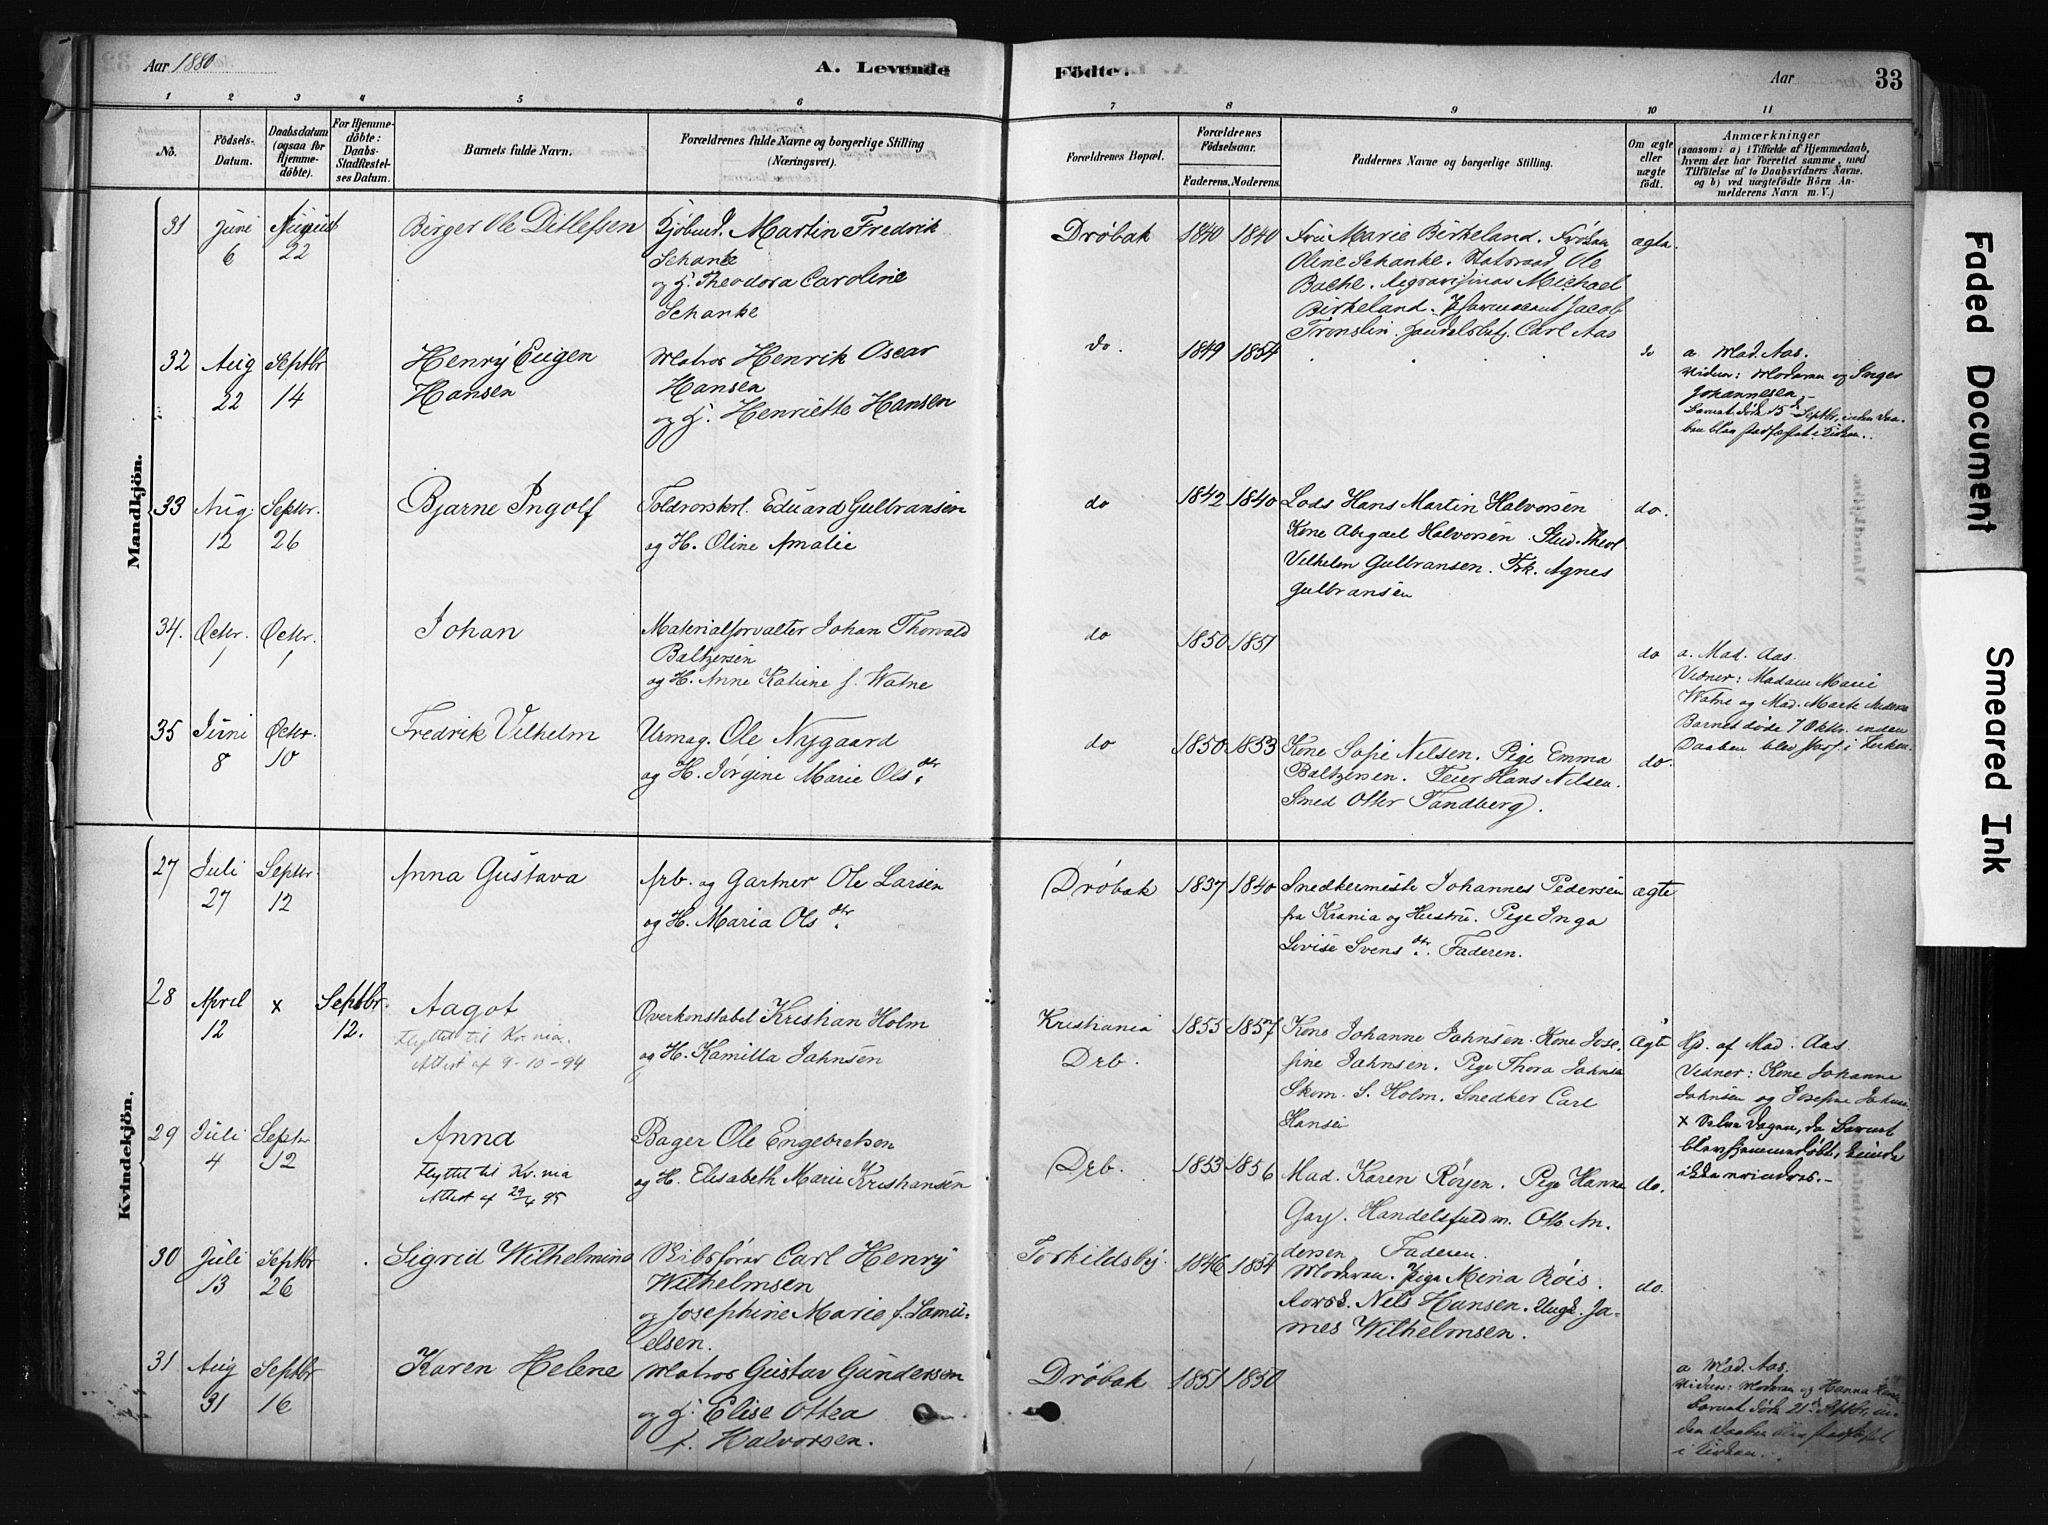 Aar 1880
A. Levende
Födte.
Aar
33
1 2 3 4 5 6 7 8 9 10 11
No.
Födsels-
Datum.
Daabsdatum
(ogsaa for
Hjemme-
döbte).
For Hjemme-
döbte:
Daabs-
Stadfæstel-
ses Datum.
Barnets fulde Navn.
Forældrenes fulde Navne og borgerlige Stilling
(Næringsvei).
Forældrenes Bopæl.
Forældrenes
Födselsaar.
Faderens. Moderens.
Faddernes Navne og borgerlige Stilling.
Om ægte
eller
uægte
födt.
Anmærkninger
(saasom: a) i Tilfælde af Hjemmedaab,
hvem der har forrettet samme, med
Tilföielse af to Daabsvidners Navne.
og b) ved uægtefödte Börn An-
melderens Navn m. V.)
Mandkjön.
31
Juni
6
August
22
Birger Ole Ditlefsen
Kjöbmd. Martin Fredrik
Schanke
og H. Theodora Caroline
Schanke
Dröbak
1840 1840
Fru Marie Birkeland. Fröken
Oline Schanke. Statsraad Ole
Bache. Michael
Birkeland. Jacob
Carl Aas
ægte.
32
Aug
22
Septbr
14
Henry Eugen
Hansen
Matros Henrik Oscar
Hansen
og H. Henriette Hansen
do.
1849 1854
do
a Mad. Aas.
Vidner: Moderen og Inger
Johannesen.
Barnet döde 15de Septbr, inden Daa-
ben blev stadfæstet i Kirken.
33
Aug
12
Septbr.
26
Bjarne Ingolf
Toldrorskrl. Eduard Gulbransen
og H. Oline Amalie
do
1842 1840
Lods Hans Martin Halvorsen
Kone Abigael Halvorsen. Stud. Theol
Vilhelm Gulbransen. Frk. Agnes
Gulbransen
do.
34.
Octbr.
1
Octbr.
1
Johan
Materialforvalter Johan Thorvald
Baltzersen
og H. Anne Katrine f. Watne
do
1850 1851
do
a. Mad. Aas.
Vidner: Madam Marie
Watne og Mad. Marte
Barnet döde 7 Oktbr. inden
Daaben blev stadf i Kirken.
35
Juni
8
Octbr.
10
Fredrik Vilhelm
Urmag. Ole Nygaard
og H. Jörgine Marie Olsdtr.
do
1850 1853
Kone Sofie Nilsen. Pige Emma
Baltzersen. Feier Hans Nilsen.
Smed Otter Tandberg.
do.
Kvindekjön.
27
Juli
27
Septbr
12
Anna Gustava
Arb. og Gartner Ole Larsen
og H. Maria Olsdtr.
Dröbak
1837 1840
Snedkermeste Johannes Pedersen
fra Krania og Hustru. Pige Inga
Lovise Svensdtr. Faderen.
ægte
28
April
12
x
Septbr.
12.
Aagot
flyttet til Kr.nia.
Attest af 9-10-94
Overkonstabel Kristian Holm
og H. Kamilla Jahnsen
Kristiania
Drb.
1855 1857
Kone Johanne Jahnsen. Kone Jose-
fine Jahnsen. Pige Thora Jahnsen
Skom. S. Holm. Snedker Carl
Hansen
ægte
Hjd. af Mad. Aas.
Vidner: Kone Johanne
Jahnsen og Josefine Jahnsen.
x Selve Dagen, da Barnet
blev hjemmedöbt, kunde
ikke erindres.-
29
Juli
4
Septbr
12
Anna
flyttet til Kr.nia
Attest af 29/4 95
Bager Ole Engebretsen
og H. Elisabeth Marie Kristiansen
Drb.
1853 1856
Mad. Karen Röyen. Pige Hanna
Gay. Handelsfuldm. Otto An-
dersen Faderen.
do.
30
Juli
13
Septbr
26
Sigrid Wilhelmine
Skibsförer Carl Henry
Wilhelmsen
og Josephine Marie f. Samu-
elsen.
Torkildsby.
1846 1854
Moderen. Pige Mina Röis.
Nils Hansen. Ungk. Ja-
mes Wilhelmsen.
do.
31
Aug
31
Septbr
16
Karen Helene
Matros Gustav Gundersen
og H. Elise Ottea
f. Halvorsen.
Dröbak
1851 1850
a Mad. Aas.
Vidner: Moderen og Hanna
Barnet döde 21de Septbr, in-
den Daaben blev stadfæstet
i Kirken.
Faded Document
Smeared Ink